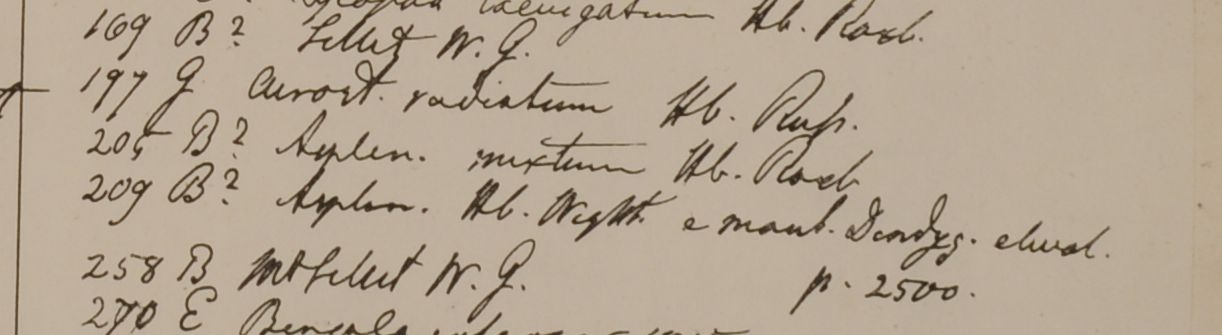 laevigatum Hb. Roxb.
169 B? Sillet W. G.
197 G Acrost. radiatum Hb. Russ.
205 B? Asplen. mixtum Hb. Roxb
209 B? Asplen. Hb. Wight. e mont. Dindyg. elwal.
258 B Mt Sillet W. G. p. 2500.
270 E